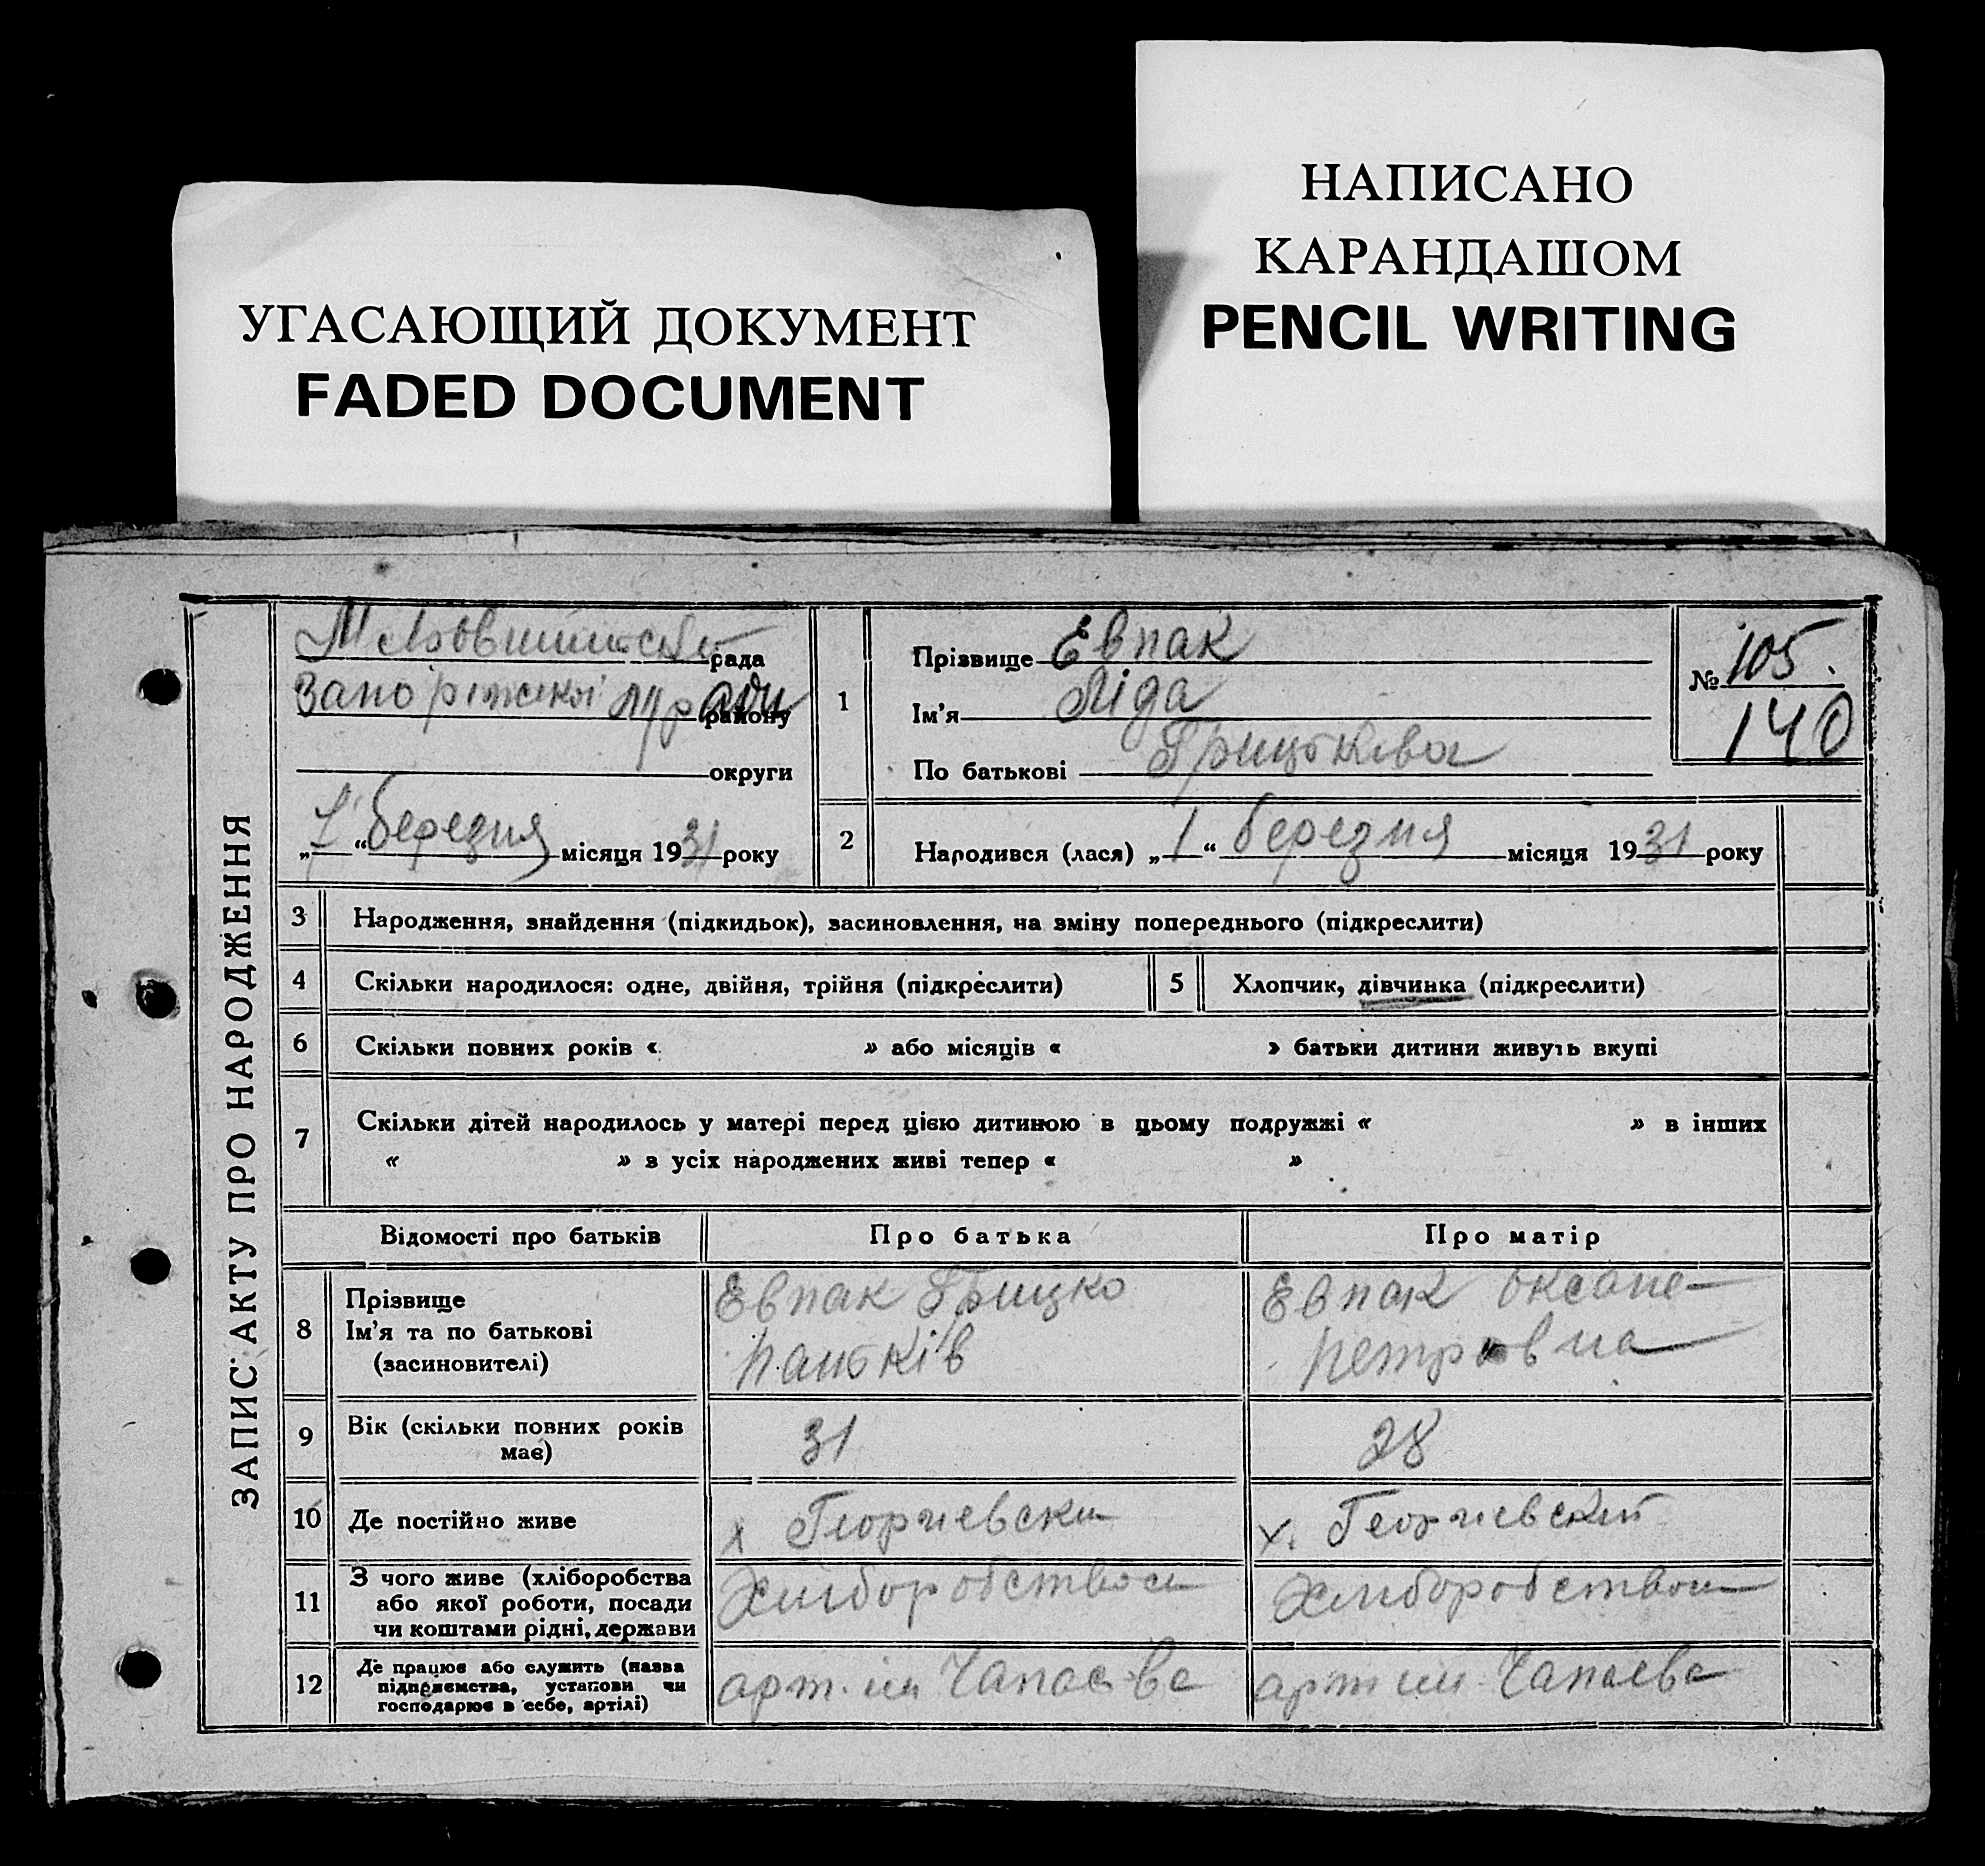 НАПИСАНО
КАРАНДАШОМ
PENCIL WRITING
УГАСАЮЩИЙ ДОКУМЕНТ
FADED DOCUMENT
ЗАПИС АКТУ ПРО НАРОДЖЕННЯ
рада
Запоріжської району
округи
„ “ березня місяця 1931 року
1
Прізвище Евпак
Ім'я Ліда
По батькові Грицьківа
№ 105.
140
2
Народився (лася) „1“ березня місяця 1931 року
3 Народження, знайдення (підкидьок), засиновлення, на зміну попереднього (підкреслити)
4 Скільки народилося: одне, двійня, трійня (підкреслити)
5 Хлопчик, дівчинка (підкреслити)
6 Скільки повних років « » або місяців « » батьки дитини живуть вкупі
7 Скільки дітей народилось у матері перед цією дитиною в цьому подружжі « » в інших
« » з усіх народжених живі тепер « »
Відомості про батьків Про батька Про матір
8
Прізвище
Ім'я та по батькові
(засиновителі)
Евпак Грицко
Паньків
Евпак Оксане
Петровна
9
Вік (скільки повних років
має)
31
28
10 Де постійно живе
х Георгиевски
х. Георгиевский
11
З чого живе (хліборобства
або якої роботи, посади
чи коштами рідні, держави
Хліборобством
Хлиборобством
12
Де працює або служить (назва
підприємства, установи чи
господарює в себе, артілі)
арт. ім Чапаєва
арт им. Чапаева